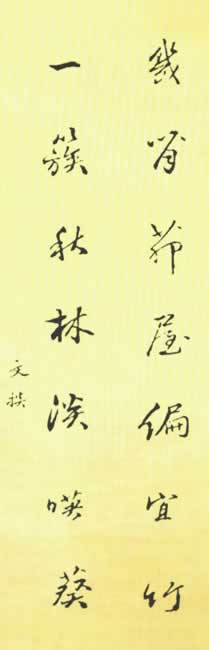 幾間茆屋偏宜竹
一簇秋林淡暎葵
文